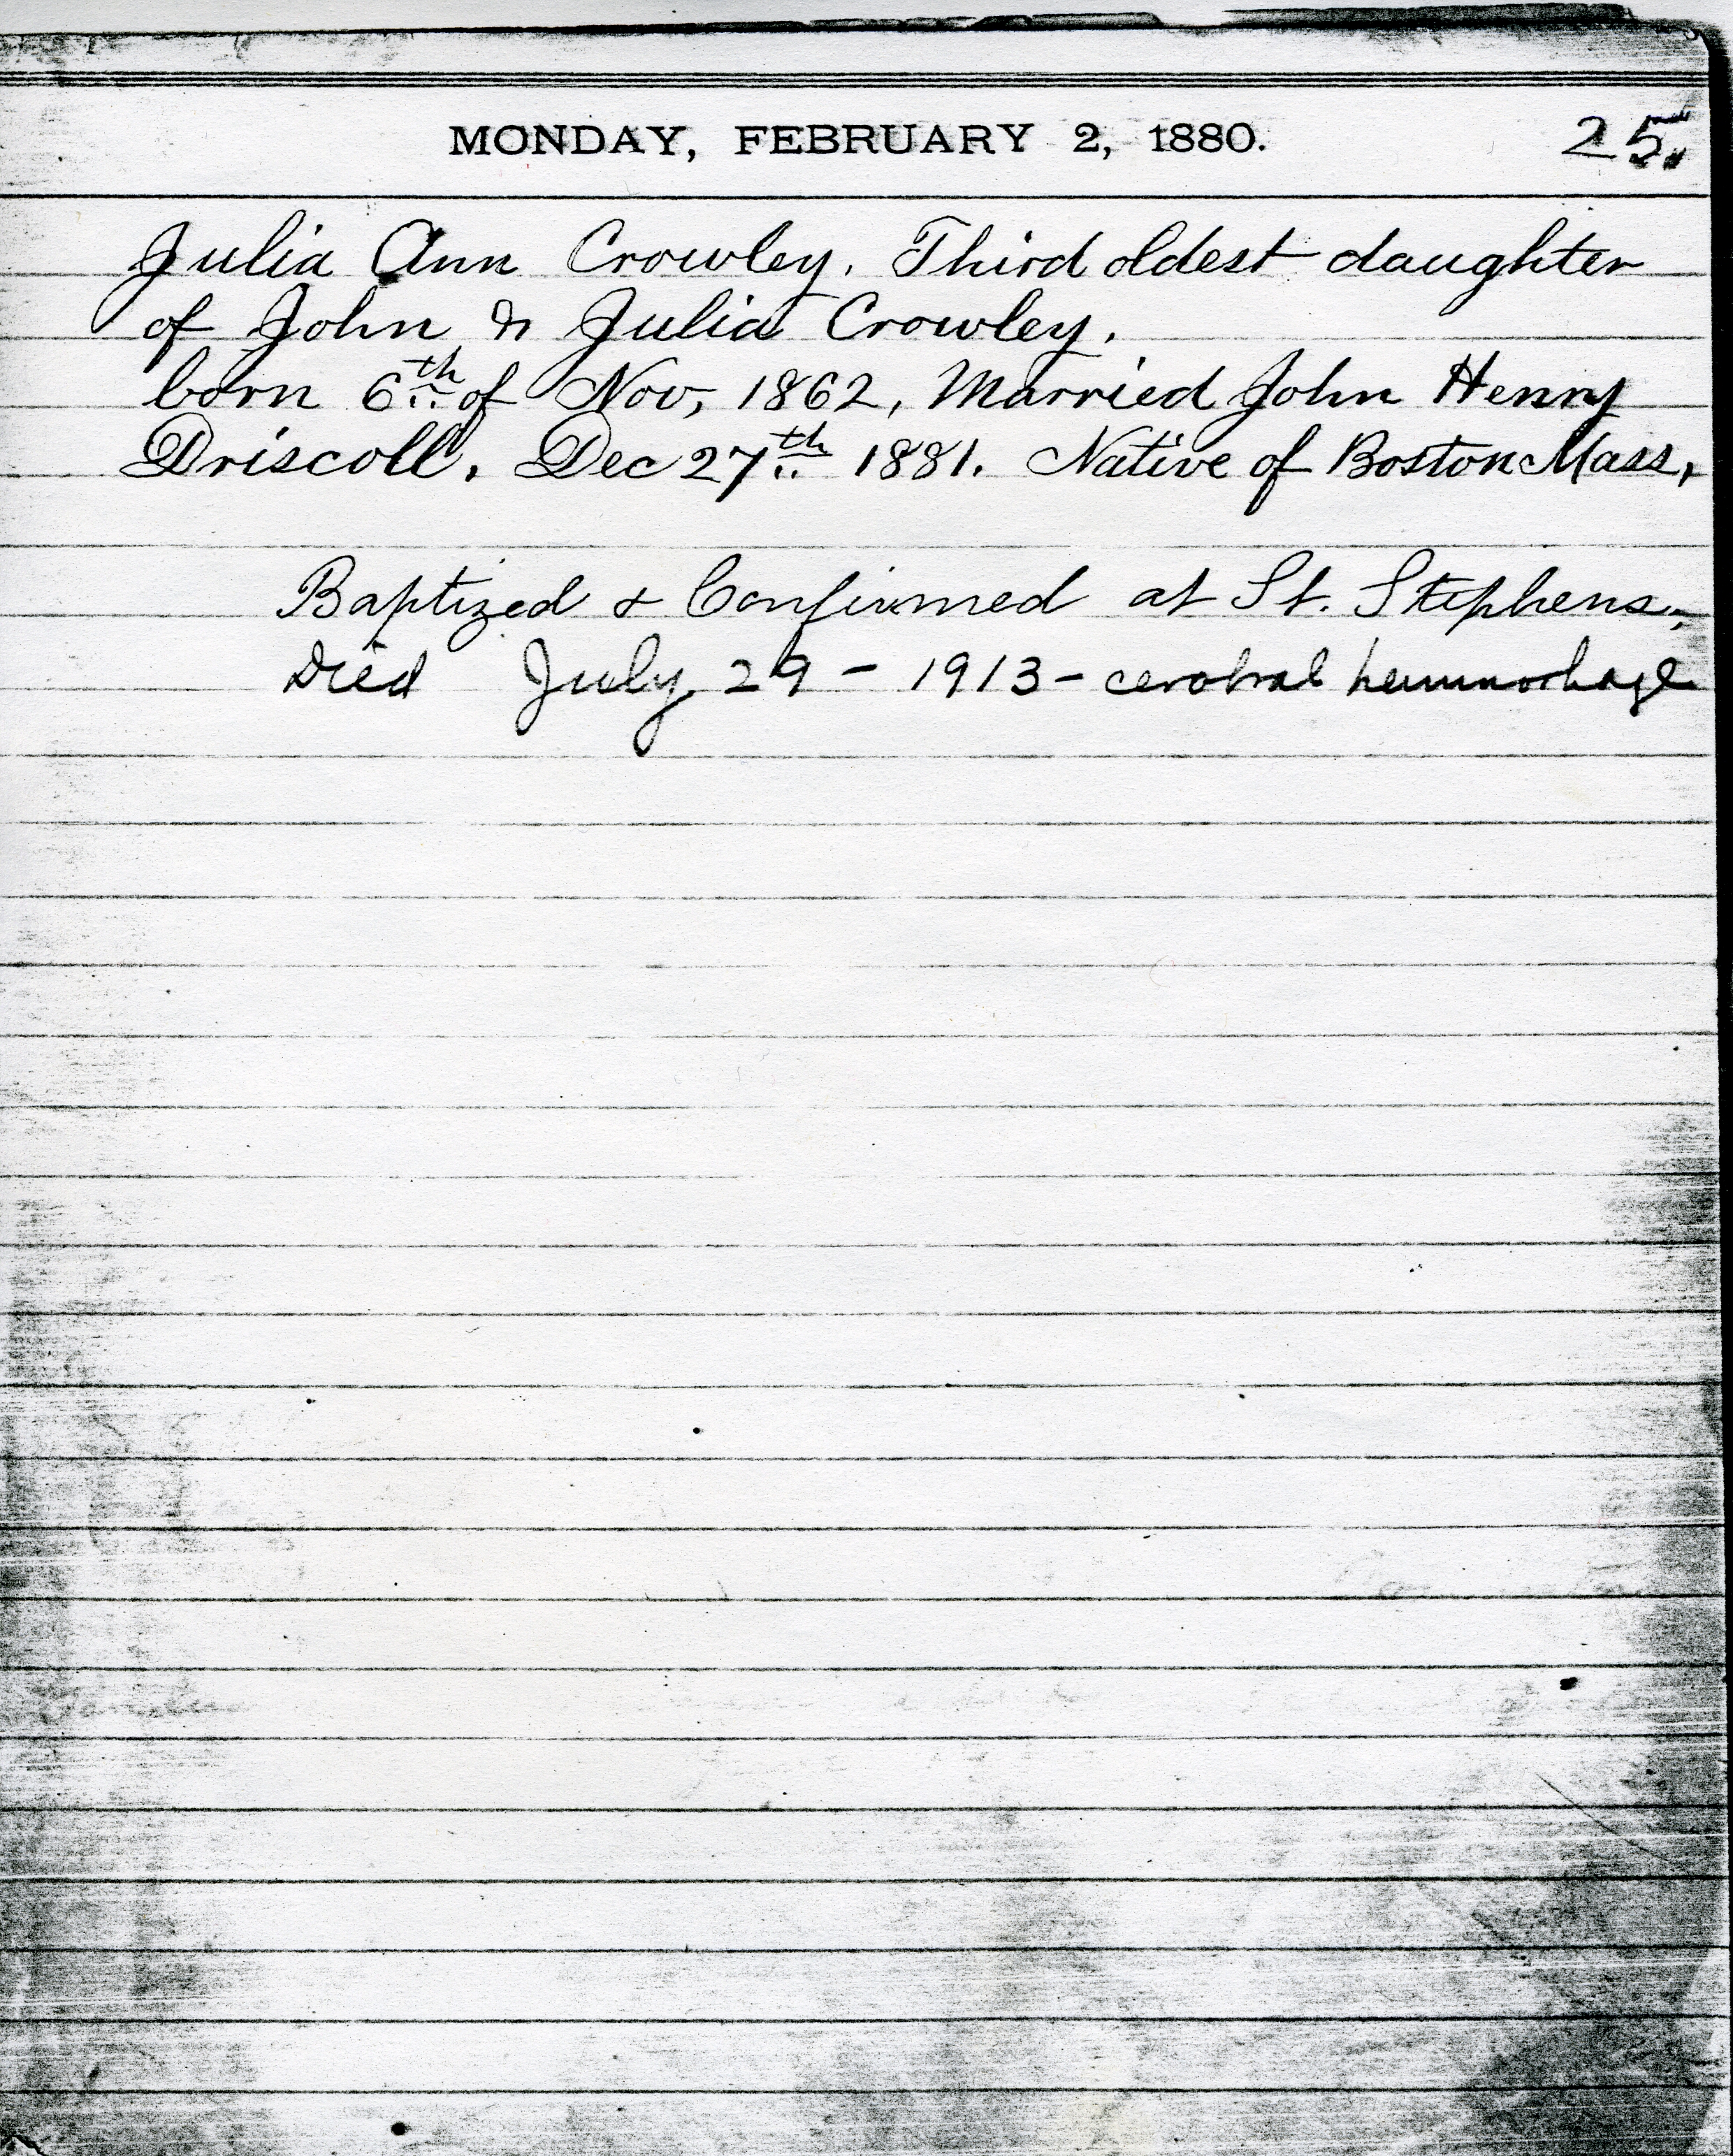 MONDAY, FEBRUARY 2, 1880. 25.
Julia Ann Crowley. Third oldest daughter
of John & Julia Crowley.
born 6th of Nov, 1862, Married John Henry
Driscoll. Dec 27th 1881. Native of Boston Mass,
Baptized & Confirmed at St. Stephens.
Died July 29 - 1913 - cerebral hemmorhage